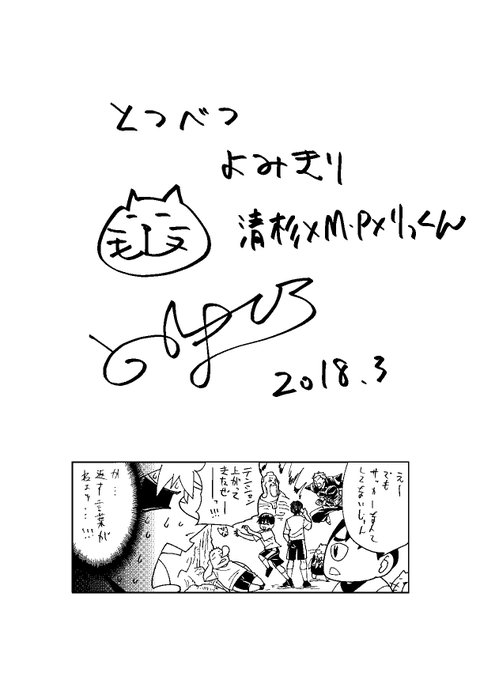 とつべつ
よみきり
清杉×M・P×りっくん
2018.3
えー
でも
サッカーなんて
してないじゃん
テンション
上がって
きたぜ
ーーっ!!!
か…
返す言葉が
ねェ…!!!